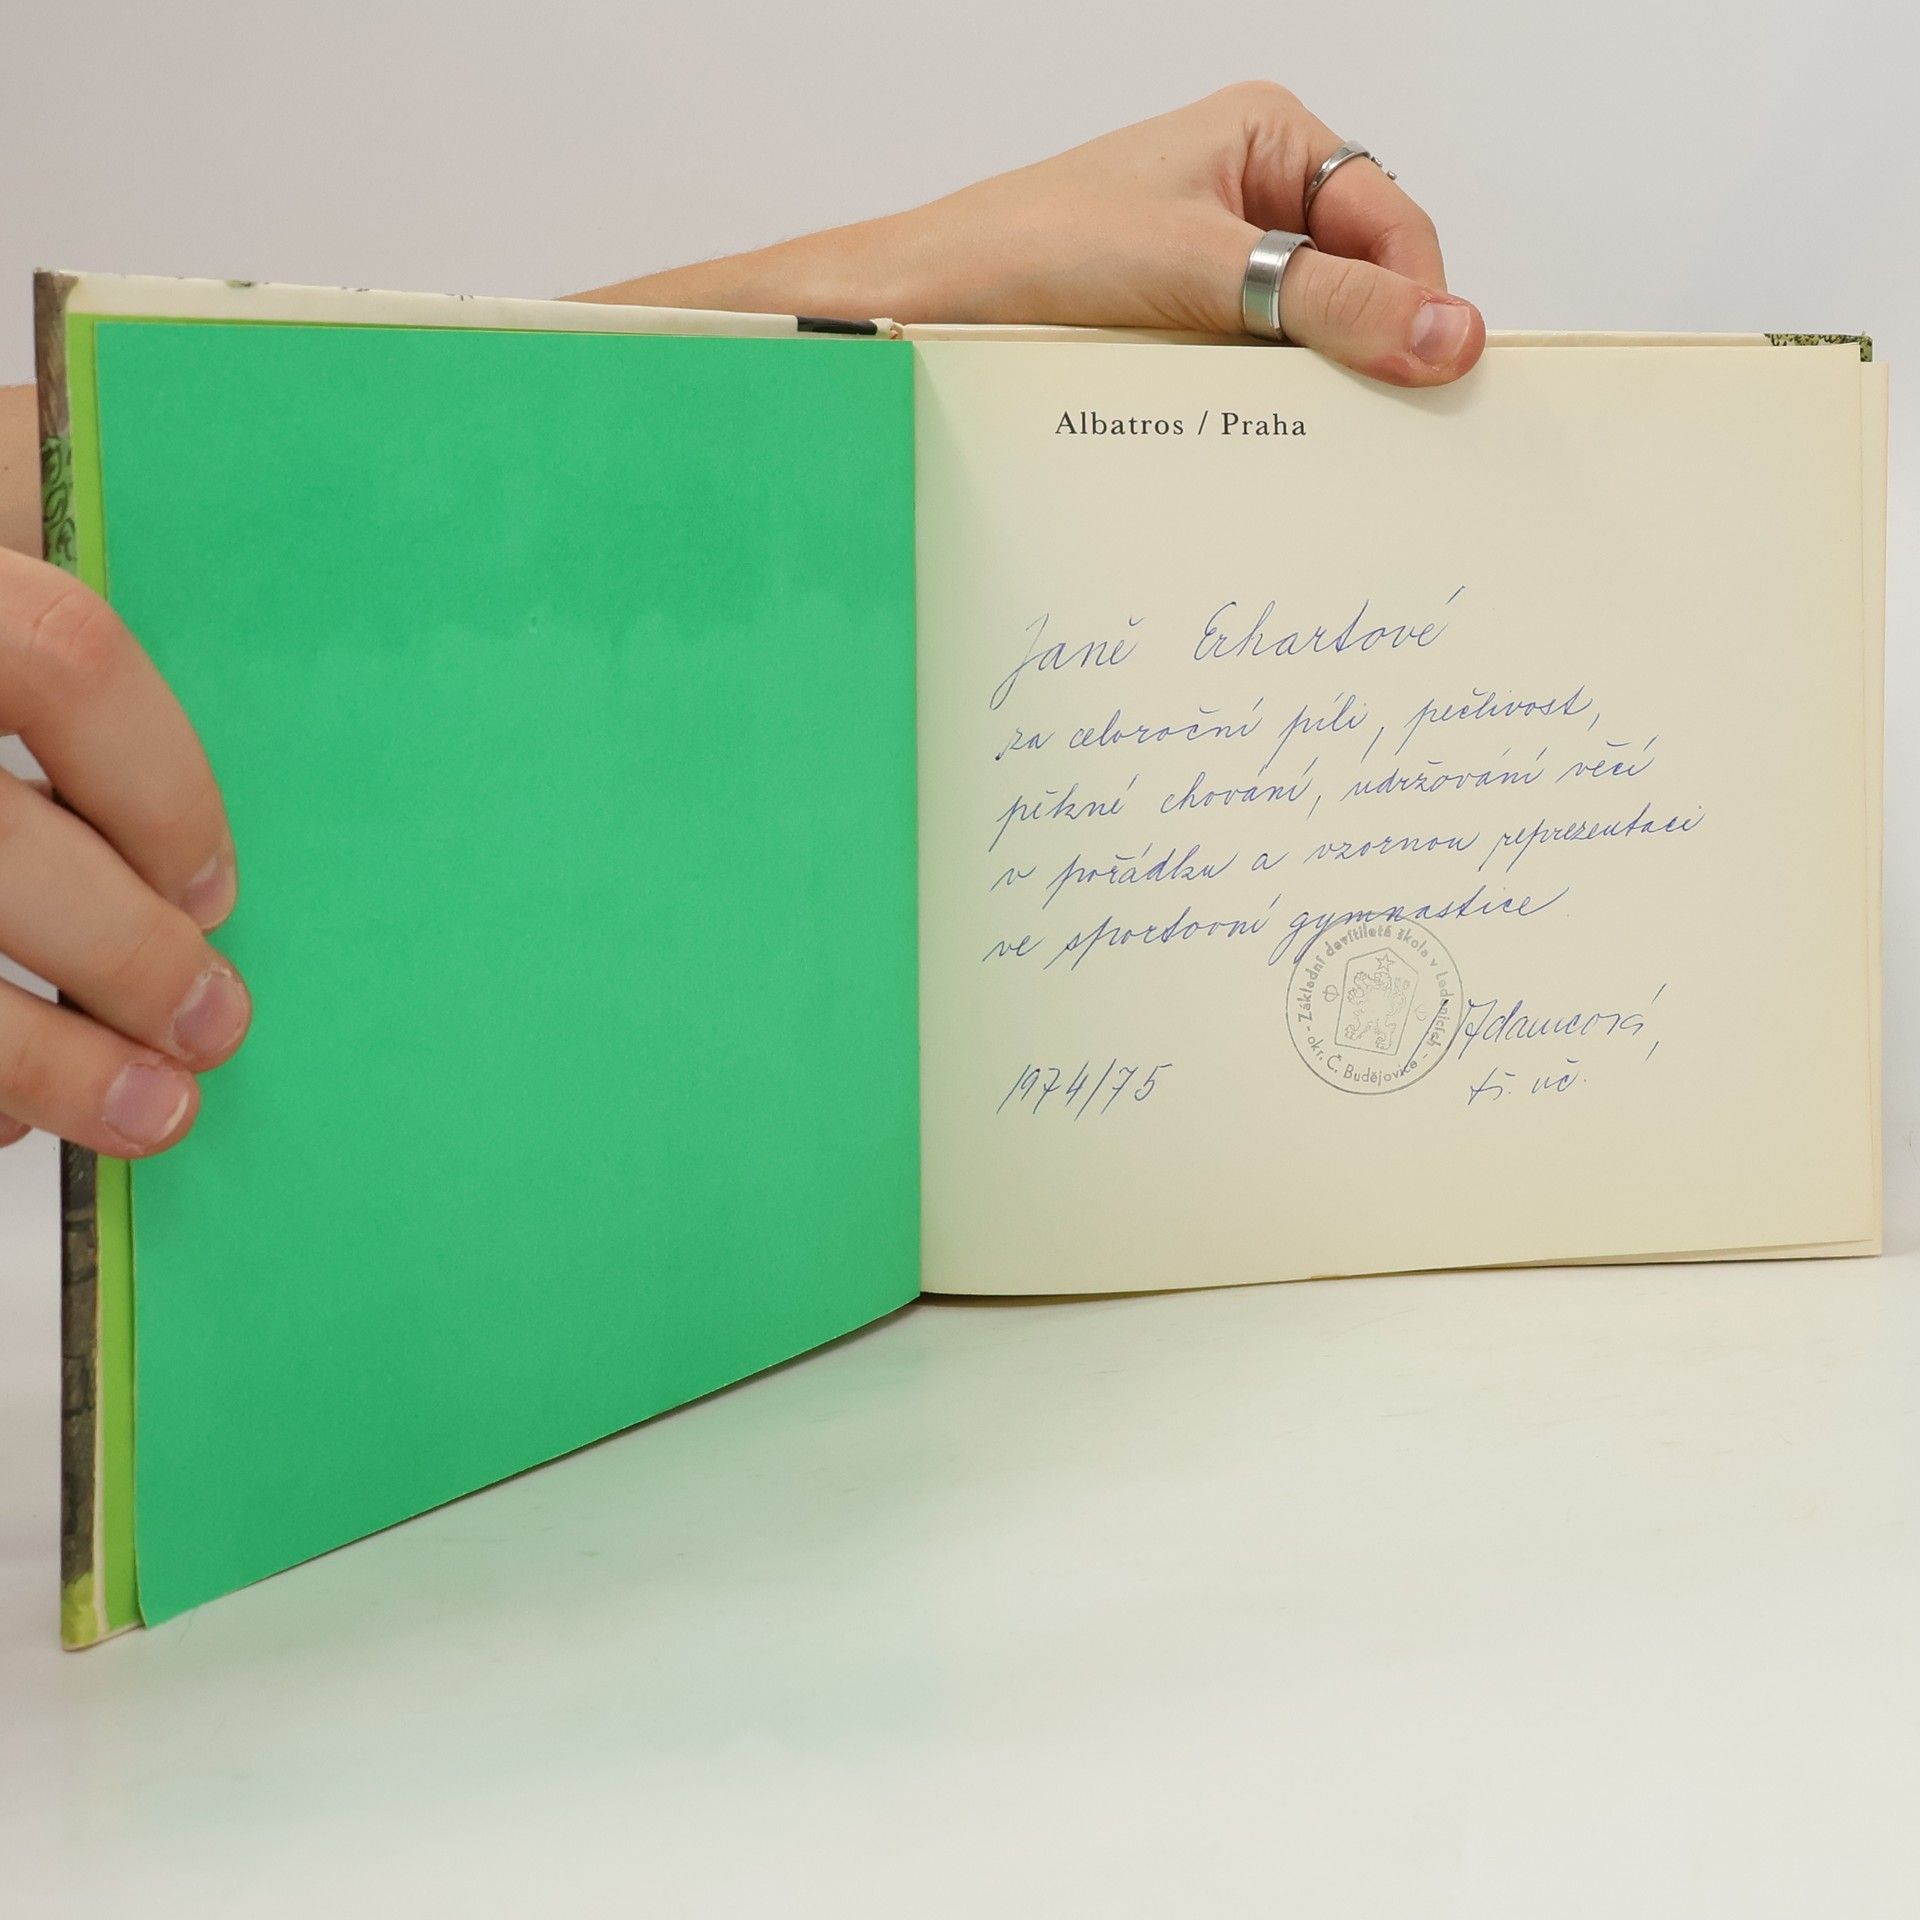 Albatros / Praha
Janě Erhartové
za celoroční píli, pečlivost,
pěkné chování, udržování věcí
v pořádku a vzornou reprezentaci
ve sportovní gymnastice
- Základní devítiletá škola v Ledenicích -
okr. Č. Budějovice
Adamcová,
tř. uč.
1974/75